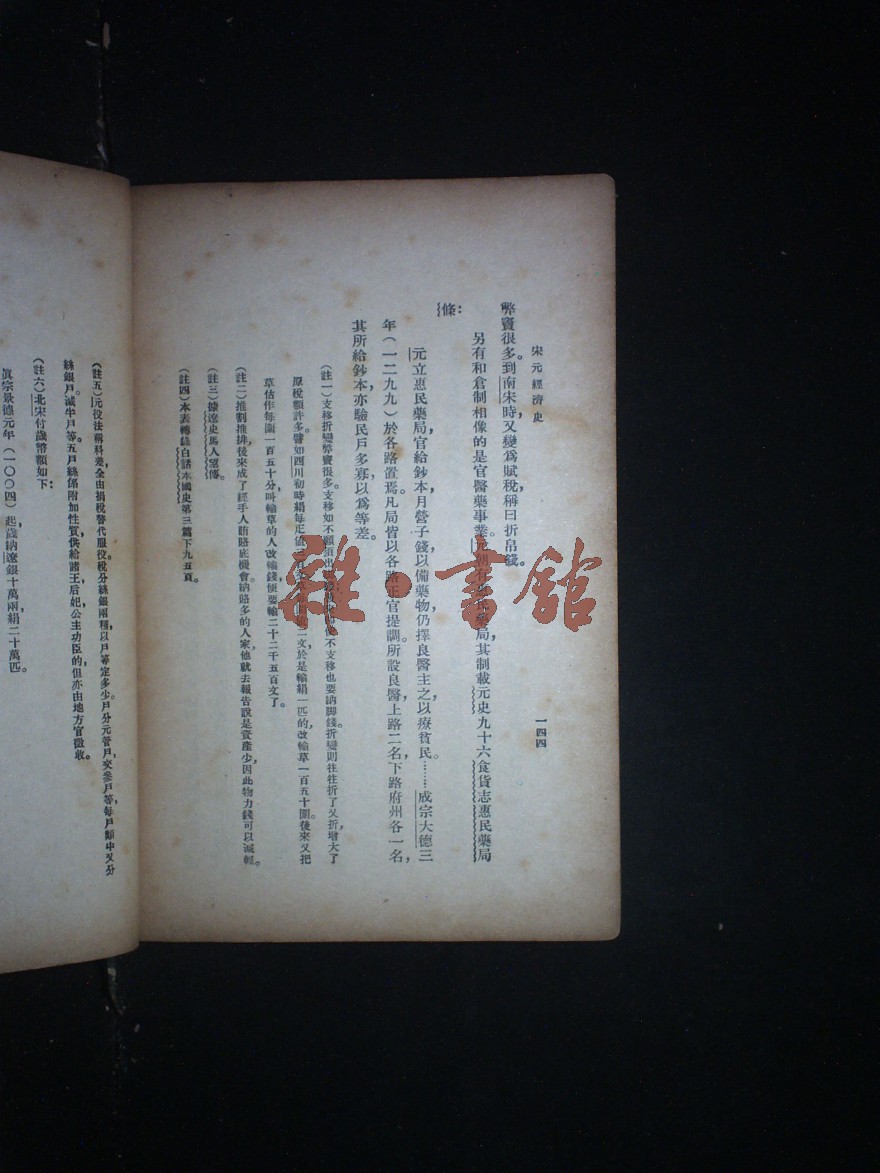 宋元經濟史
一四四
弊竇很多。到南宋時又變爲賦稅,稱曰折帛錢。
另有和倉制相像的是官醫藥事業。元朝有惠民藥局,其制載元史九十六食貨志惠民藥局
條:
元立惠民藥局,官給鈔本,月營子錢,以備藥物,仍擇良醫主之,以療貧民。……成宗大德三
年(一二九九)於各路置焉。凡局皆以各路正官提調。所設良醫,上路二名,下路府州各一名,
其所給鈔本,亦驗民戶多寡,以爲等差。
(註一)支移折變弊竇很多。支移如不願須出 不支移也要納脚錢。折變則往往折了又折,增大了
原稅額許多。譬如四川初時絹每疋值 文,於是輸絹一匹的,改輸草一百五十圍。後來又把
草估作每圍一百五十分,叫輸草的人改輸錢,便要輸二十二千五百文了。
(註二)推割推排,後來成了經手人賄賂底機會。納賂多的人家,他就去報告說是資產少,因此物力錢可以減輕。
(註三)據遼史馬人望傳。
(註四)本表轉錄白話本國史第三篇下九五頁。
(註五)元役法稱科差,全由捐稅替代服役。稅分絲銀兩種,以戶等定多少。戶分元管戶,交參戶等,每戶類中又分
絲銀戶,減半戶等。五戶絲係附加性質,供給諸王后妃公主功臣的,但亦由地方官徵收。
(註六)北宋付歲幣額如下:
眞宗景德元年(一〇〇四)起,歲納遼銀十萬兩,絹二十萬匹。
雜·書館